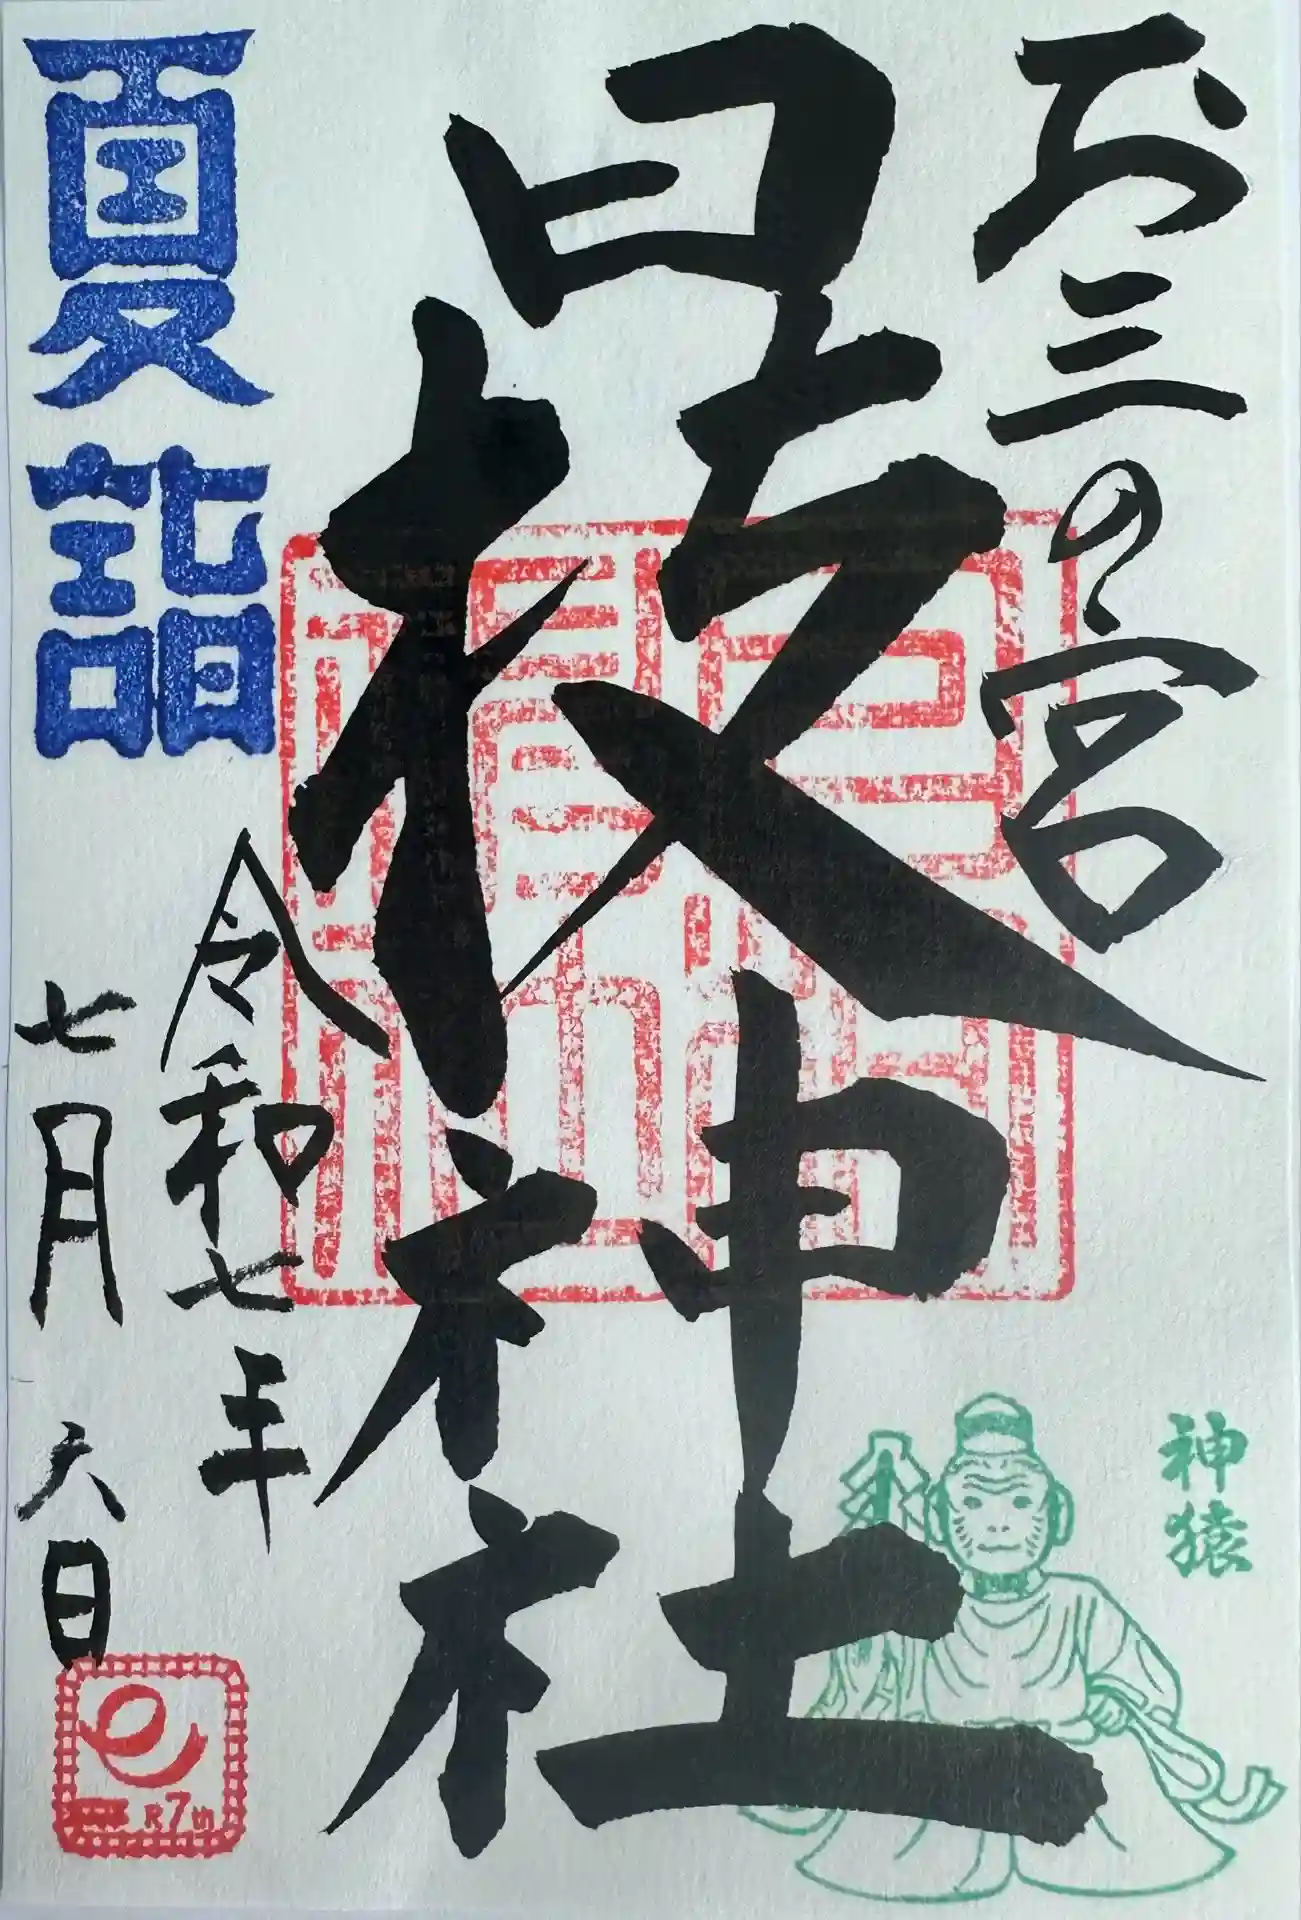 お三の宮
日枝神社
夏詣
令和七年
七月六日
神猿
R7th